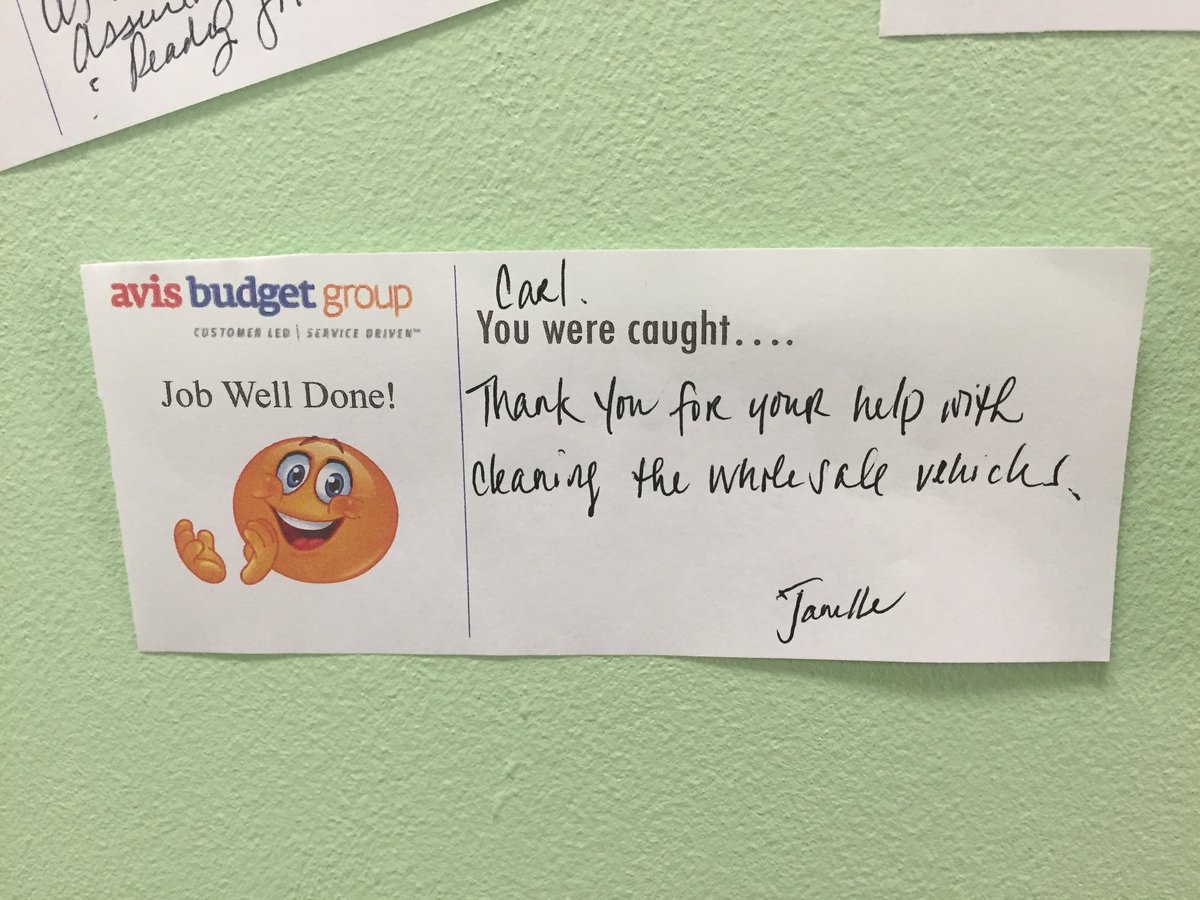 assure
Ready
avis budget group
CUSTOMER LED | SERVICE DRIVEN™
Job Well Done!
Carl.
You were caught....
Thank you for your help with
cleaning the wholesale vehicles.
Janelle